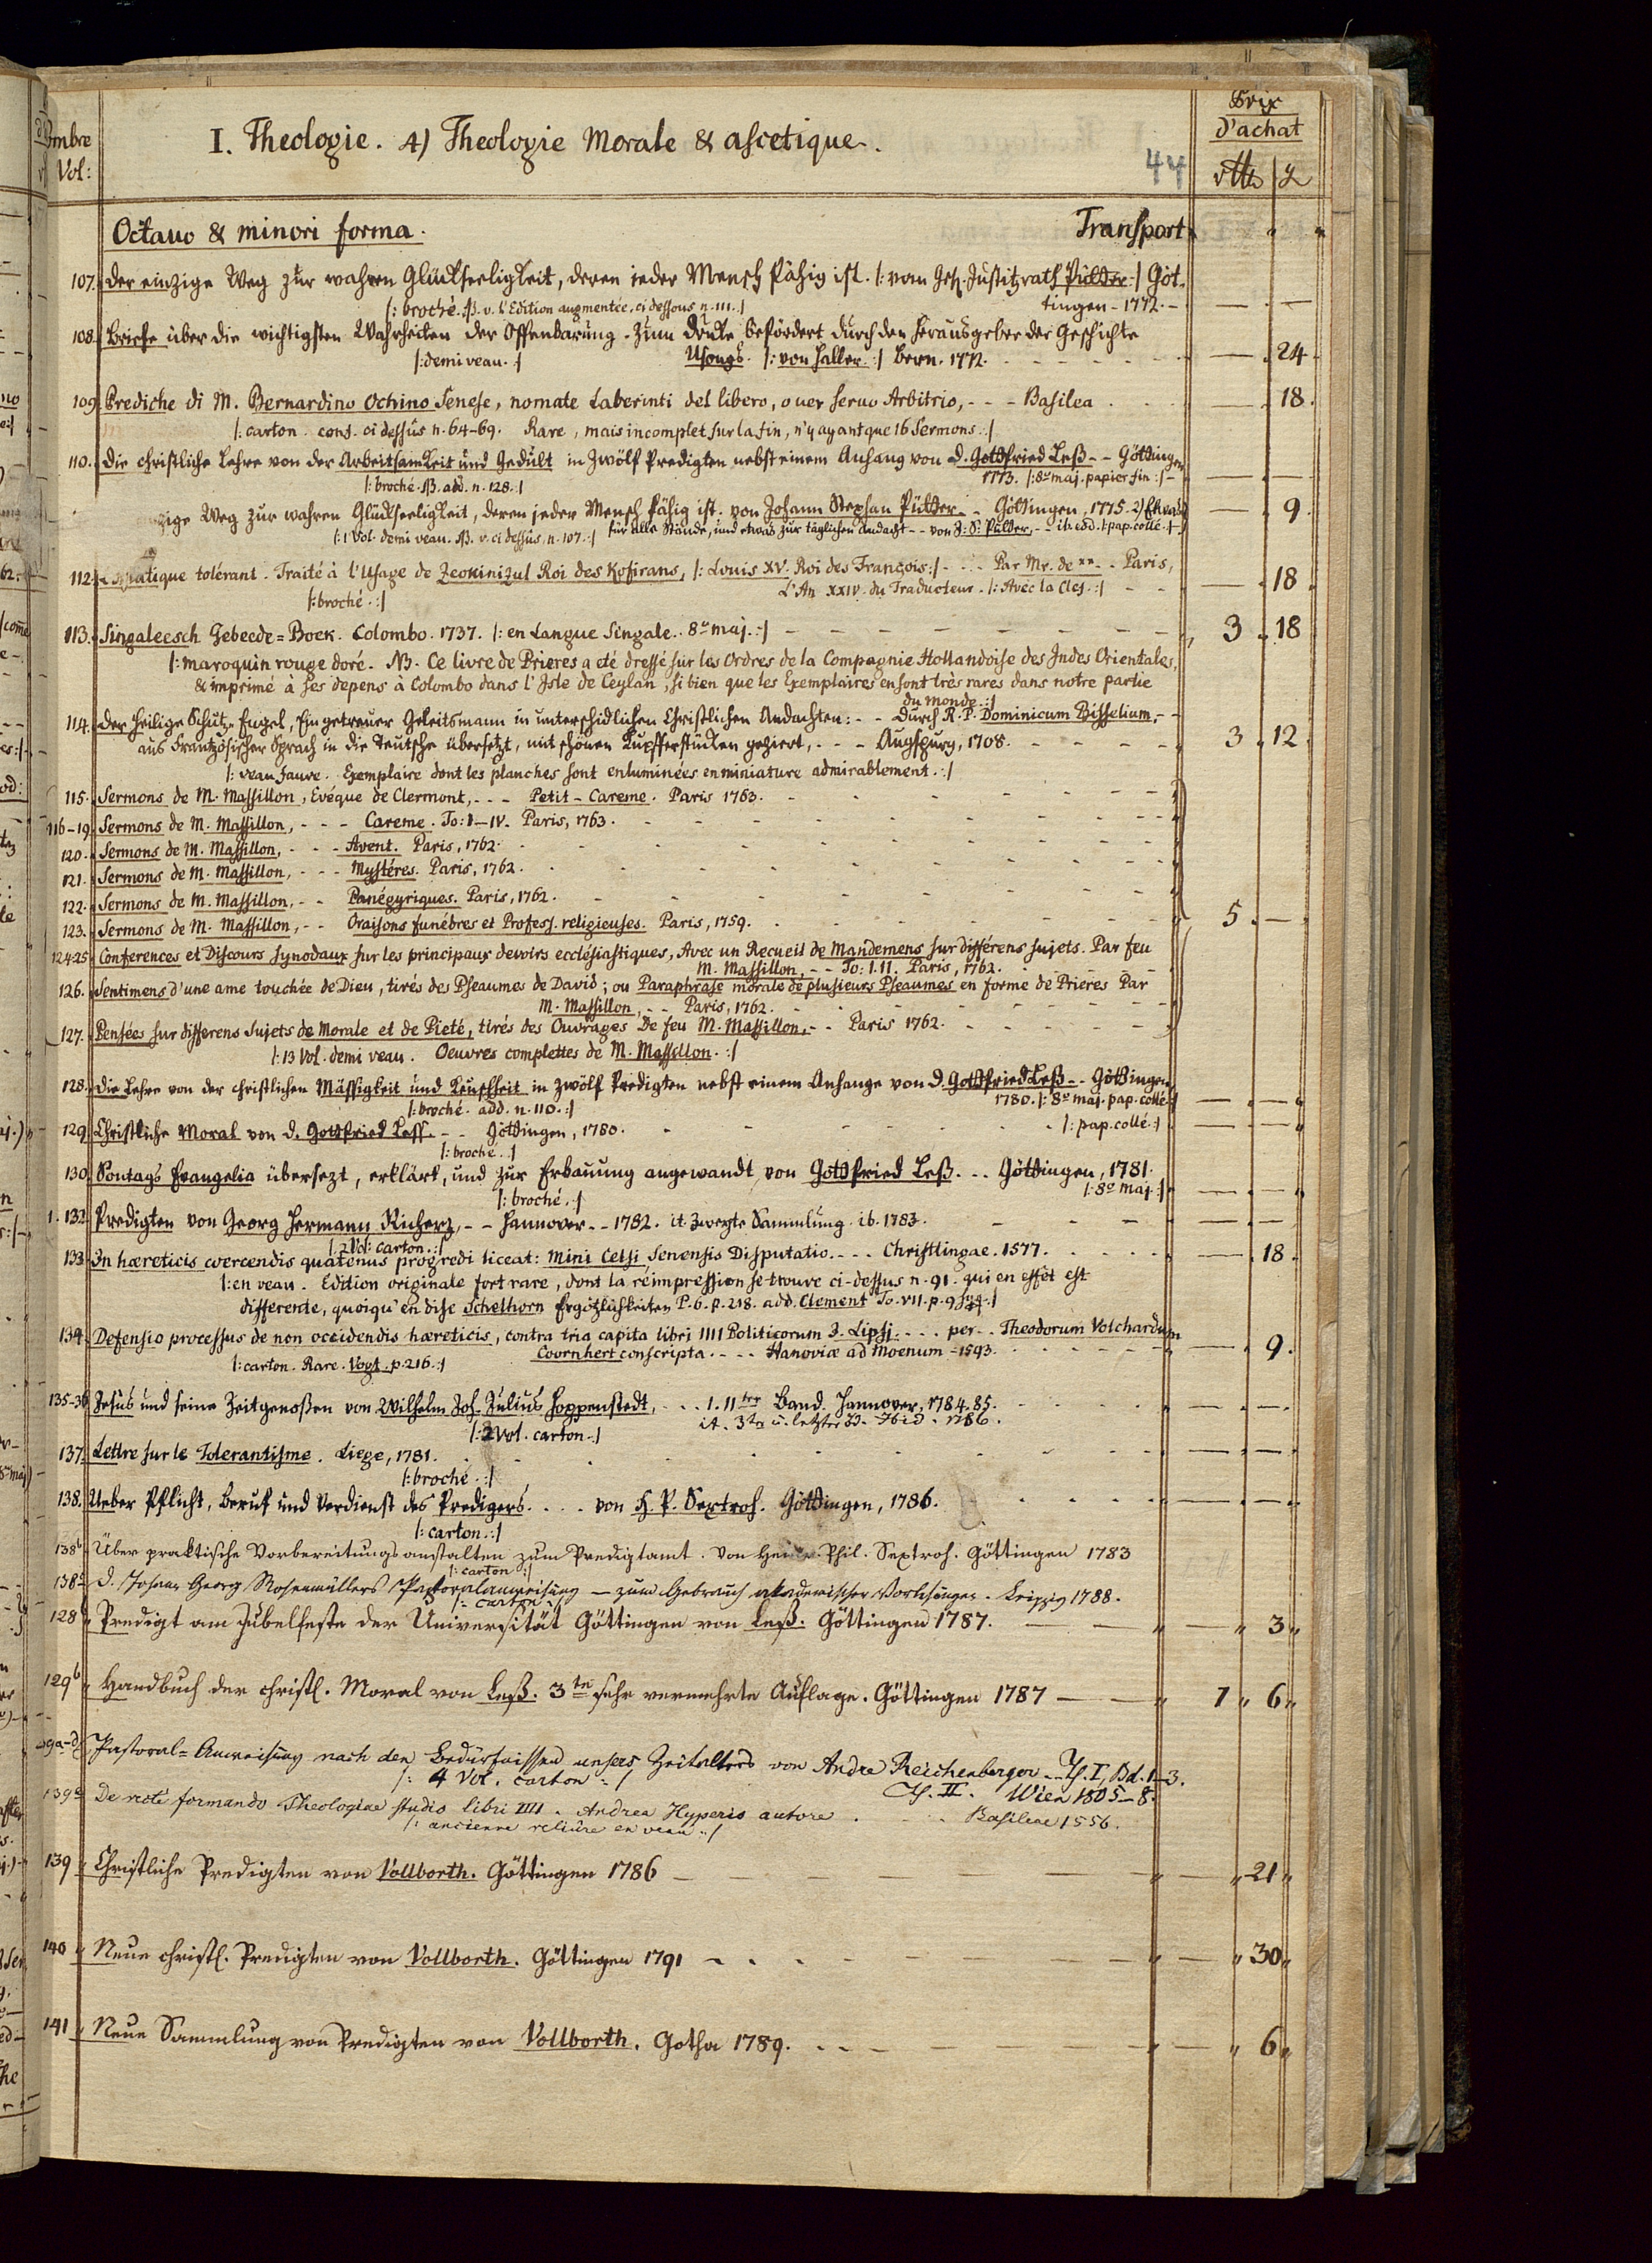 Prix
d'achat
ombre
Vol:
I. Theologie. 4) Theologie Morale & ascetique.
44
rtts
Octavo & minori forma. Transport
107. Der einzige Weg zur wahren Glückseeligkeit, deren jeder Mensch fähig ist. |: vom Geh. Justitzrath Pütter :| Göt-
|: broché. NB. v. l'Edition augmentée, ci dessous n. 111. :| tingen - 1772. -
108. Briefe über die wichtigsten Wahrheiten der Offenbarung. Zum Drucke befördert durch den Herausgeber der Geschichte
|: demi veau. :| Usongs. |: von Haller. :| Bern. 1772. — 24.
109. Prediche di M. Bernardino Ochino Senese, nomate Laberinti del libero, o ver servo Arbitrio, - - - Basilea — 18.
|: carton. conf. ci dessus n. 64-69. Rare, mais incomplet sur la fin, n'y ayant que 16 Sermons. :|
110. Die christliche Lehre von der Arbeitsamkeit und Gedult in zwölf Predigten nebst einem Anhang von D. Gottfried Leß - - Göttingen
|: broché. NB. add. n. 128. :| 1773. |: 8vo maj. papier fin :| -
zige Weg zur wahren Glückseeligkeit, deren jeder Mensch fähig ist. von Johann Stephan Pütter - - Göttingen, 1775. 2) Etwas — 9.
|: 1 Vol. demi veau. NB. v. ci dessus, n. 107. :| für alle Stände, und etwas zur täglichen Andacht - - von J. S. Pütter, - - ib. eod. |: pap. collé. :|
112. atique tolérant. Traité à l'Usage de Zeokinizul Roi des Kofirans, |: Louis XV. Roi des François :| - - - Par Mr. de ** - - Paris,
|: broché. :| L'An XXIV. du Traducteur. |: Avec la Clef. :| - - — 18.
113. Singaleesch Gebeede=Boek. Colombo. 1737. |: en Langue Singale. 8vo maj. :| 3. 18
|: maroquin rouge doré. NB. Ce livre de Prieres a eté dressé sur les Ordres de la Compagnie Hollandoise des Indes Orientales,
& imprimé à ses depens à Colombo dans l'Isle de Ceylan, si bien que les Exemplaires en sont très rares dans notre partie
du Monde. :|
114. Der Heilige Schutz-Engel, Ein getreuer Geleitsmann in unterschidlichen Christlichen Andachten: - - Durch R. P. Dominicum Bisselium, - -
aus Frantzösischer Sprach in die Teutsche übersetzt, mit schönen Kupfferstücken geziert, - - - Augspurg, 1708. 3. 12.
|: veau fauve. Exemplaire dont les planches sont enluminées en miniature admirablement. :|
115. Sermons de M. Massillon, Evéque de Clermont, - - - Petit-Careme. Paris 1763.
116-19. Sermons de M. Massillon, - - - Careme. To: I-IV. Paris, 1763.
120. Sermons de M. Massillon, - - - Avent. Paris, 1762.
121. Sermons de M. Massillon, - - - Mystéres. Paris, 1762.
122. Sermons de M. Massillon, - - Panégyriques. Paris, 1762.
123. Sermons de M. Massillon, - - Oraisons funébres et Profess. religieuses. Paris, 1759. 5. —
124-25. Conferences et Discours synodaux sur les principaux devoirs ecclésiastiques, Avec un Recueil de Mandemens sur différens sujets. Par feu
M. Massillon, - - To: I. II. Paris, 1762.
126. Sentimens d'une ame touchée de Dieu, tirés des Pseaumes de David; ou Paraphrase morale de plusieurs Pseaumes en forme de Prieres Par
M. Massillon, - - Paris, 1762.
127. Pensées sur differens sujets de Morale et de Pieté, tirés des Ouvrages De feu M. Massillon, - - Paris 1762.
|: 13 Vol. demi veau. Oeuvres complettes de M. Massillon. :|
128. Die Lehre von der christlichen Mässigkeit und Keuschheit in zwölf Predigten nebst einem Anhange von D. Gottfried Leß - - Göttingen,
|: broché. add. n. 110. :| 1780. |: 8vo maj. pap. collé :|
129. Christliche Moral von D. Gottfried Less. - - Göttingen, 1780. |: pap. collé. :|
|: broché. :|
130. Sontags Evangelia übersezt, erklärt, und zur Erbauung angewandt, von Gottfried Leß. - - Göttingen, 1781.
|: broché. :| |: 8vo maj. :|
1. 132. Predigten von Georg Hermann Richerz, - - Hannover - - 1782. it. zweyte Sammlung. ib. 1783.
|: 2 Vol: carton. :|
133. In hæreticis coercendis quatenus progredi liceat: Mini Celsi, Senensis Disputatio. - - - Christlingae. 1577. — 18.
|: en veau. Edition originale fort rare, dont la réimpression se trouve ci-dessus n. 91. qui en effét est
differente, quoiqu'en dise Schelhorn Ergötzlichkeiten P. 6. p. 218. add. Clement To. VII. p. 9 sqq. :|
134. Defensio processus de non occidendis hæreticis, contra tria capita libri IIII Politicorum J. Lipsj. - - - per - - Theodorum Volchardum
Coornhert conscripta. - - - Hanoviæ ad Moenum - 1593. — 9.
|: carton. Rare. Vogt. p. 216. :|
135-36. Jesus und seine Zeitgenoßen von Wilhelm Joh. Julius Hoppenstedt, - - 1. 11ter Band. Hannover, 1784. 85.
|: 2 Vol. carton. :| it. 3ter u. letzter B. Ibid. 1786.
137. Lettre sur le Tolerantisme. Liege, 1781.
|: broché. :|
138. Ueber Pflicht, Beruf und Verdienst des Predigers. - - - von H. P. Sextroh. Göttingen, 1786.
|: carton. :|
138b Über praktische Vorbereitungsanstalten zum Predigtamt. Von Heinr. Phil. Sextroh. Göttingen 1783
|: carton :|
138c D. Johann Georg Rosenmüllers Pastoralanweisung — zum Gebrauch akademischer Vorlesungen. Leipzig 1788.
|: carton :|
128b Predigt am Jubelfeste der Universität Göttingen von Leß. Göttingen 1787. — 3
129b Handbuch der christl. Moral von Leß. 3te sehr vermehrte Auflage. Göttingen 1787 — 1 6
Pastoral-Anweisung nach den Bedürfnissen unsers Zeitalters von Andre Reichenberger - - Th. I, Bd. 1-3.
|: 4 Vol. carton :| Th. II. Wien 1805-8.
139e De recte formando Theologiae studio libri IIII. Andrea Hyperio autore Basileae 1556.
|: ancienne reliûre en veau :|
139 Christliche Predigten von Vollborth. Göttingen 1786 — 21
140 Neue christl. Predigten von Vollborth. Göttingen 1791 — 30
141 Neue Sammlung von Predigten von Vollborth. Gotha 1789. — 6